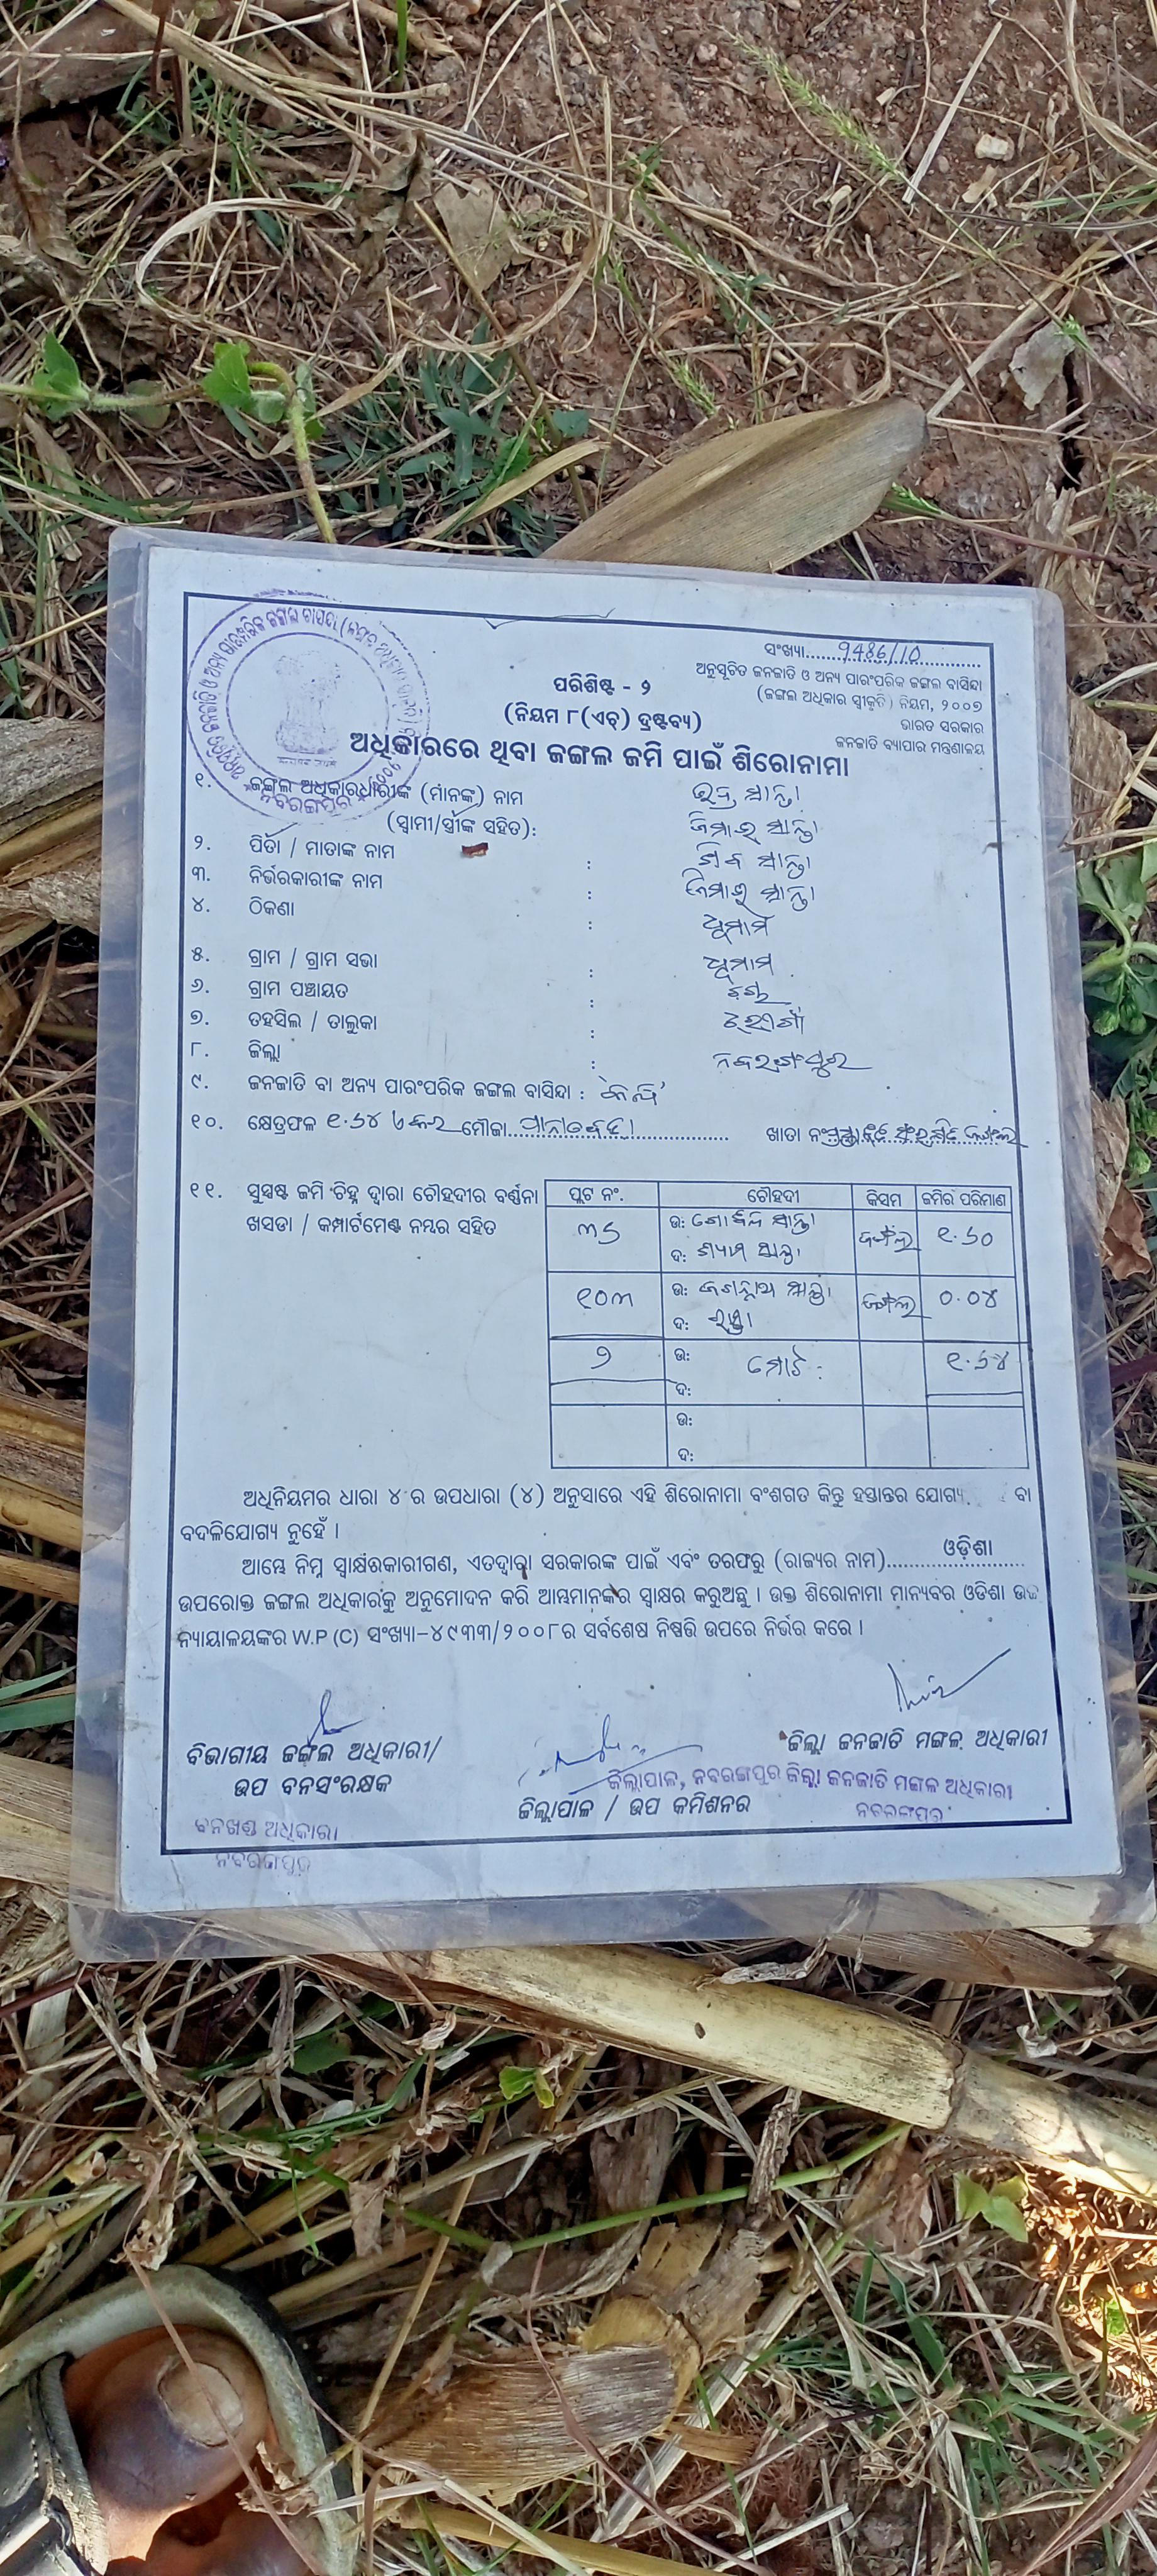 ସଂଖ୍ୟା.....9486/10
ଅନୁସୂଚିତ ଜନଜାତି ଓ ଅନ୍ୟ ପାରଂପରିକ ଜଙ୍ଗଲ ବାସିନ୍ଦା
(ଜଙ୍ଗଲ ଅଧିକାର ସ୍ୱୀକୃତି) ନିୟମ, ୨୦୦୭
ଭାରତ ସରକାର
ଜନଜାତି ବ୍ୟାପାର ମନ୍ତ୍ରଣାଳୟ
ପରିଶିଷ୍ଟ - ୨
(ନିୟମ ୮(ଏଚ୍) ଦ୍ରଷ୍ଟବ୍ୟ)
ଅଧିକାରରେ ଥିବା ଜଙ୍ଗଲ ଜମି ପାଇଁ ଶିରୋନାମା
୧. ଜଙ୍ଗଲ ଅଧିକାରଧାରୀଙ୍କ (ମାନଙ୍କ) ନାମ
(ସ୍ୱାମୀ/ସ୍ତ୍ରୀଙ୍କ ସହିତ):
୨. ପିତା / ମାତାଙ୍କ ନାମ :
୩. ନିର୍ଭରକାରୀଙ୍କ ନାମ :
୪. ଠିକଣା :
୫. ଗ୍ରାମ / ଗ୍ରାମ ସଭା :
୬. ଗ୍ରାମ ପଞ୍ଚାୟତ :
୭. ତହସିଲ / ତାଲୁକା :
୮. ଜିଲ୍ଲା : ନବରଂଗପୁର
୯. ଜନଜାତି ବା ଅନ୍ୟ ପାରଂପରିକ ଜଙ୍ଗଲ ବାସିନ୍ଦା :
୧୦. କ୍ଷେତ୍ରଫଳ ୧.୬୪ ଏକର ମୌଜା..... ଖାତା ନଂ
୧୧. ସୁସ୍ପଷ୍ଟ ଜମି ଚିହ୍ନ ଦ୍ୱାରା ଚୌହଦୀର ବର୍ଣ୍ଣନା
ଖସଡା / କମ୍ପାର୍ଟମେଣ୍ଟ ନମ୍ବର ସହିତ
ପ୍ଲଟ ନଂ. ଚୌହଦୀ କିସମ ଜମିର ପରିମାଣ
୩୬ ଉ: ଜଙ୍ଗଲ ୧.୬୦
ଦ:
୧୦୩ ଉ: ଜଙ୍ଗଲ ୦.୦୪
ଦ: ରାସ୍ତା
୨ ଉ: ମୋଟ: ୧.୬୪
ଦ:
ଉ:
ଦ:
ଅଧିନିୟମର ଧାରା ୪ ର ଉପଧାରା (୪) ଅନୁସାରେ ଏହି ଶିରୋନାମା ବଂଶଗତ କିନ୍ତୁ ହସ୍ତାନ୍ତର ଯୋଗ୍ୟ ବା
ବଦଳିଯୋଗ୍ୟ ନୁହେଁ ।
ଆମ୍ଭେ ନିମ୍ନ ସ୍ୱାକ୍ଷରକାରୀଗଣ, ଏତଦ୍ୱାରା ସରକାରଙ୍କ ପାଇଁ ଏବଂ ତରଫରୁ (ରାଜ୍ୟର ନାମ).....ଓଡ଼ିଶା
ଉପରୋକ୍ତ ଜଙ୍ଗଲ ଅଧିକାରକୁ ଅନୁମୋଦନ କରି ଆମ୍ଭମାନଙ୍କର ସ୍ୱାକ୍ଷର କରୁଅଛୁ । ଉକ୍ତ ଶିରୋନାମା ମାନ୍ୟବର ଓଡିଶା ଉଚ୍ଚ
ନ୍ୟାୟାଳୟଙ୍କର W.P (C) ସଂଖ୍ୟା-୪୯୩୩/୨୦୦୮ର ସର୍ବଶେଷ ନିଷ୍ପତ୍ତି ଉପରେ ନିର୍ଭର କରେ ।
ବିଭାଗୀୟ ଜଙ୍ଗଲ ଅଧିକାରୀ/
ଉପ ବନସଂରକ୍ଷକ
ବନଖଣ୍ଡ ଅଧିକାରୀ
ନବରଙ୍ଗପୁର
ଜିଲ୍ଲାପାଳ, ନବରଙ୍ଗପୁର
ଜିଲ୍ଲାପାଳ / ଉପ କମିଶନର
ଜିଲ୍ଲା ଜନଜାତି ମଙ୍ଗଳ ଅଧିକାରୀ
ଜିଲ୍ଲା ଜନଜାତି ମଙ୍ଗଳ ଅଧିକାରୀ
ନବରଙ୍ଗପୁର